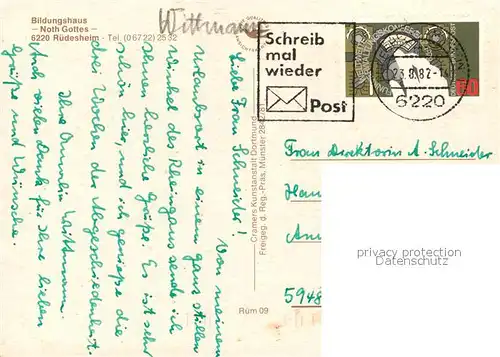 Bildungshaus
— Noth Gottes —
6220 Rüdesheim - Tel. (0 67 22) 25 32
Wittmann
Schreib
mal
wieder
Post
23.8.82
6220
Liebe Frau Schneider! Von meinem
Urlaubsort in einem ganz stillen
Winkel des Rheingaus sende ich
Ihnen herzliche Grüße. Es ist sehr
schön hier, und ich genieße die
drei Wochen der Abgeschiedenheit.
Ihre Wittmann.
Auch vielen Dank für Ihre lieben
Grüße und Wünsche.
Cramers Kunstanstalt Dortmund
Freigeg. d. Reg.-Präs. Münster
Rüm 09
Frau Direktorin A. Schneider
Am
5948
privacy protection
Datenschutz